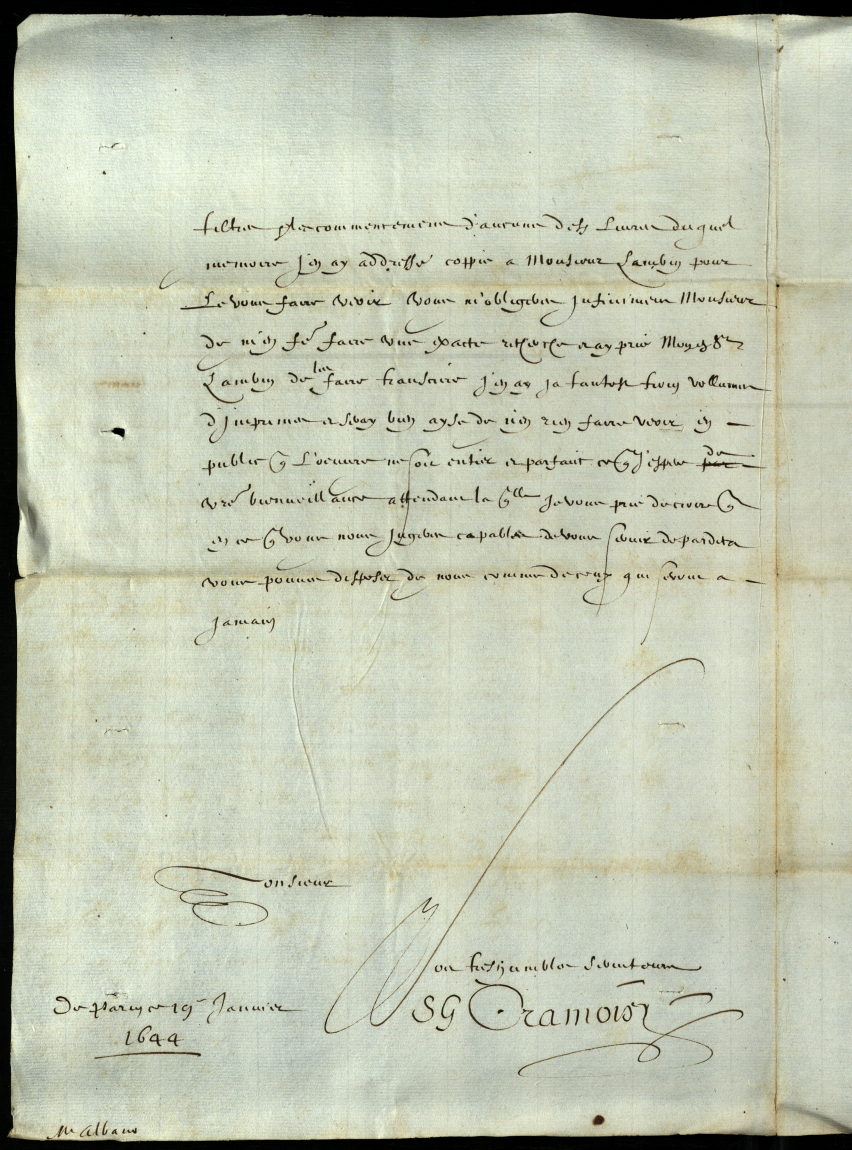 tiltre & le commencement d'aucune desd. Livres duquel
memoire J'en ay addressé coppie a Monsieur Lambin pour
Le vous faire veoir vous m'obligerez Infiniment Monsieur
de m'en fe faire une exacte recherche et ay prié
Lambin de les faire transcrire J'en ay ja tantost trois vollumes
d'Imprimes et seray bien ayse de n'en rien faire veoir en
public q L'oeuvre ne soit entier et parfait ce q J'espere par de
vre bienveillance attendant la qlle Je vous prie de croire q
en ce q vous nous Jugerez capables de vous servir de pardeca
vous pouvez disposer de nous comme de ceux qui seront a
Jamais
Monsieur
Vos tres humbles serviteurs
SG Cramoisy
De Paris ce 19e Janvier
1644
Mr Albans